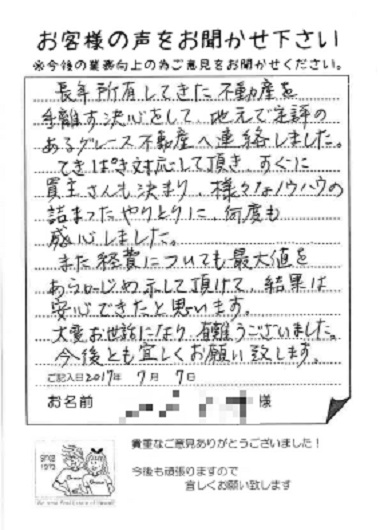 お客様の声をお聞かせ下さい
※今後の業務向上の為ご意見をお聞かせください。
長年所有してきた不動産を
手離す決心をして、地元で定評の
あるグレース不動産へ連絡しました。
てきぱき対応して頂き、すぐに
買主さんも決まり、様々なノウハウの
詰まったやりとりに、何度も
感心しました。
また経費についても最大値を
あらかじめ示して頂けて、結果は
安心できたと思います。
大変お世話になり有難うございました。
今後とも宜しくお願い致します。
ご記入日2017年 7月 7日
お名前 様
貴重なご意見ありがとうございました!
今後も頑張りますので
宜しくお願い致します